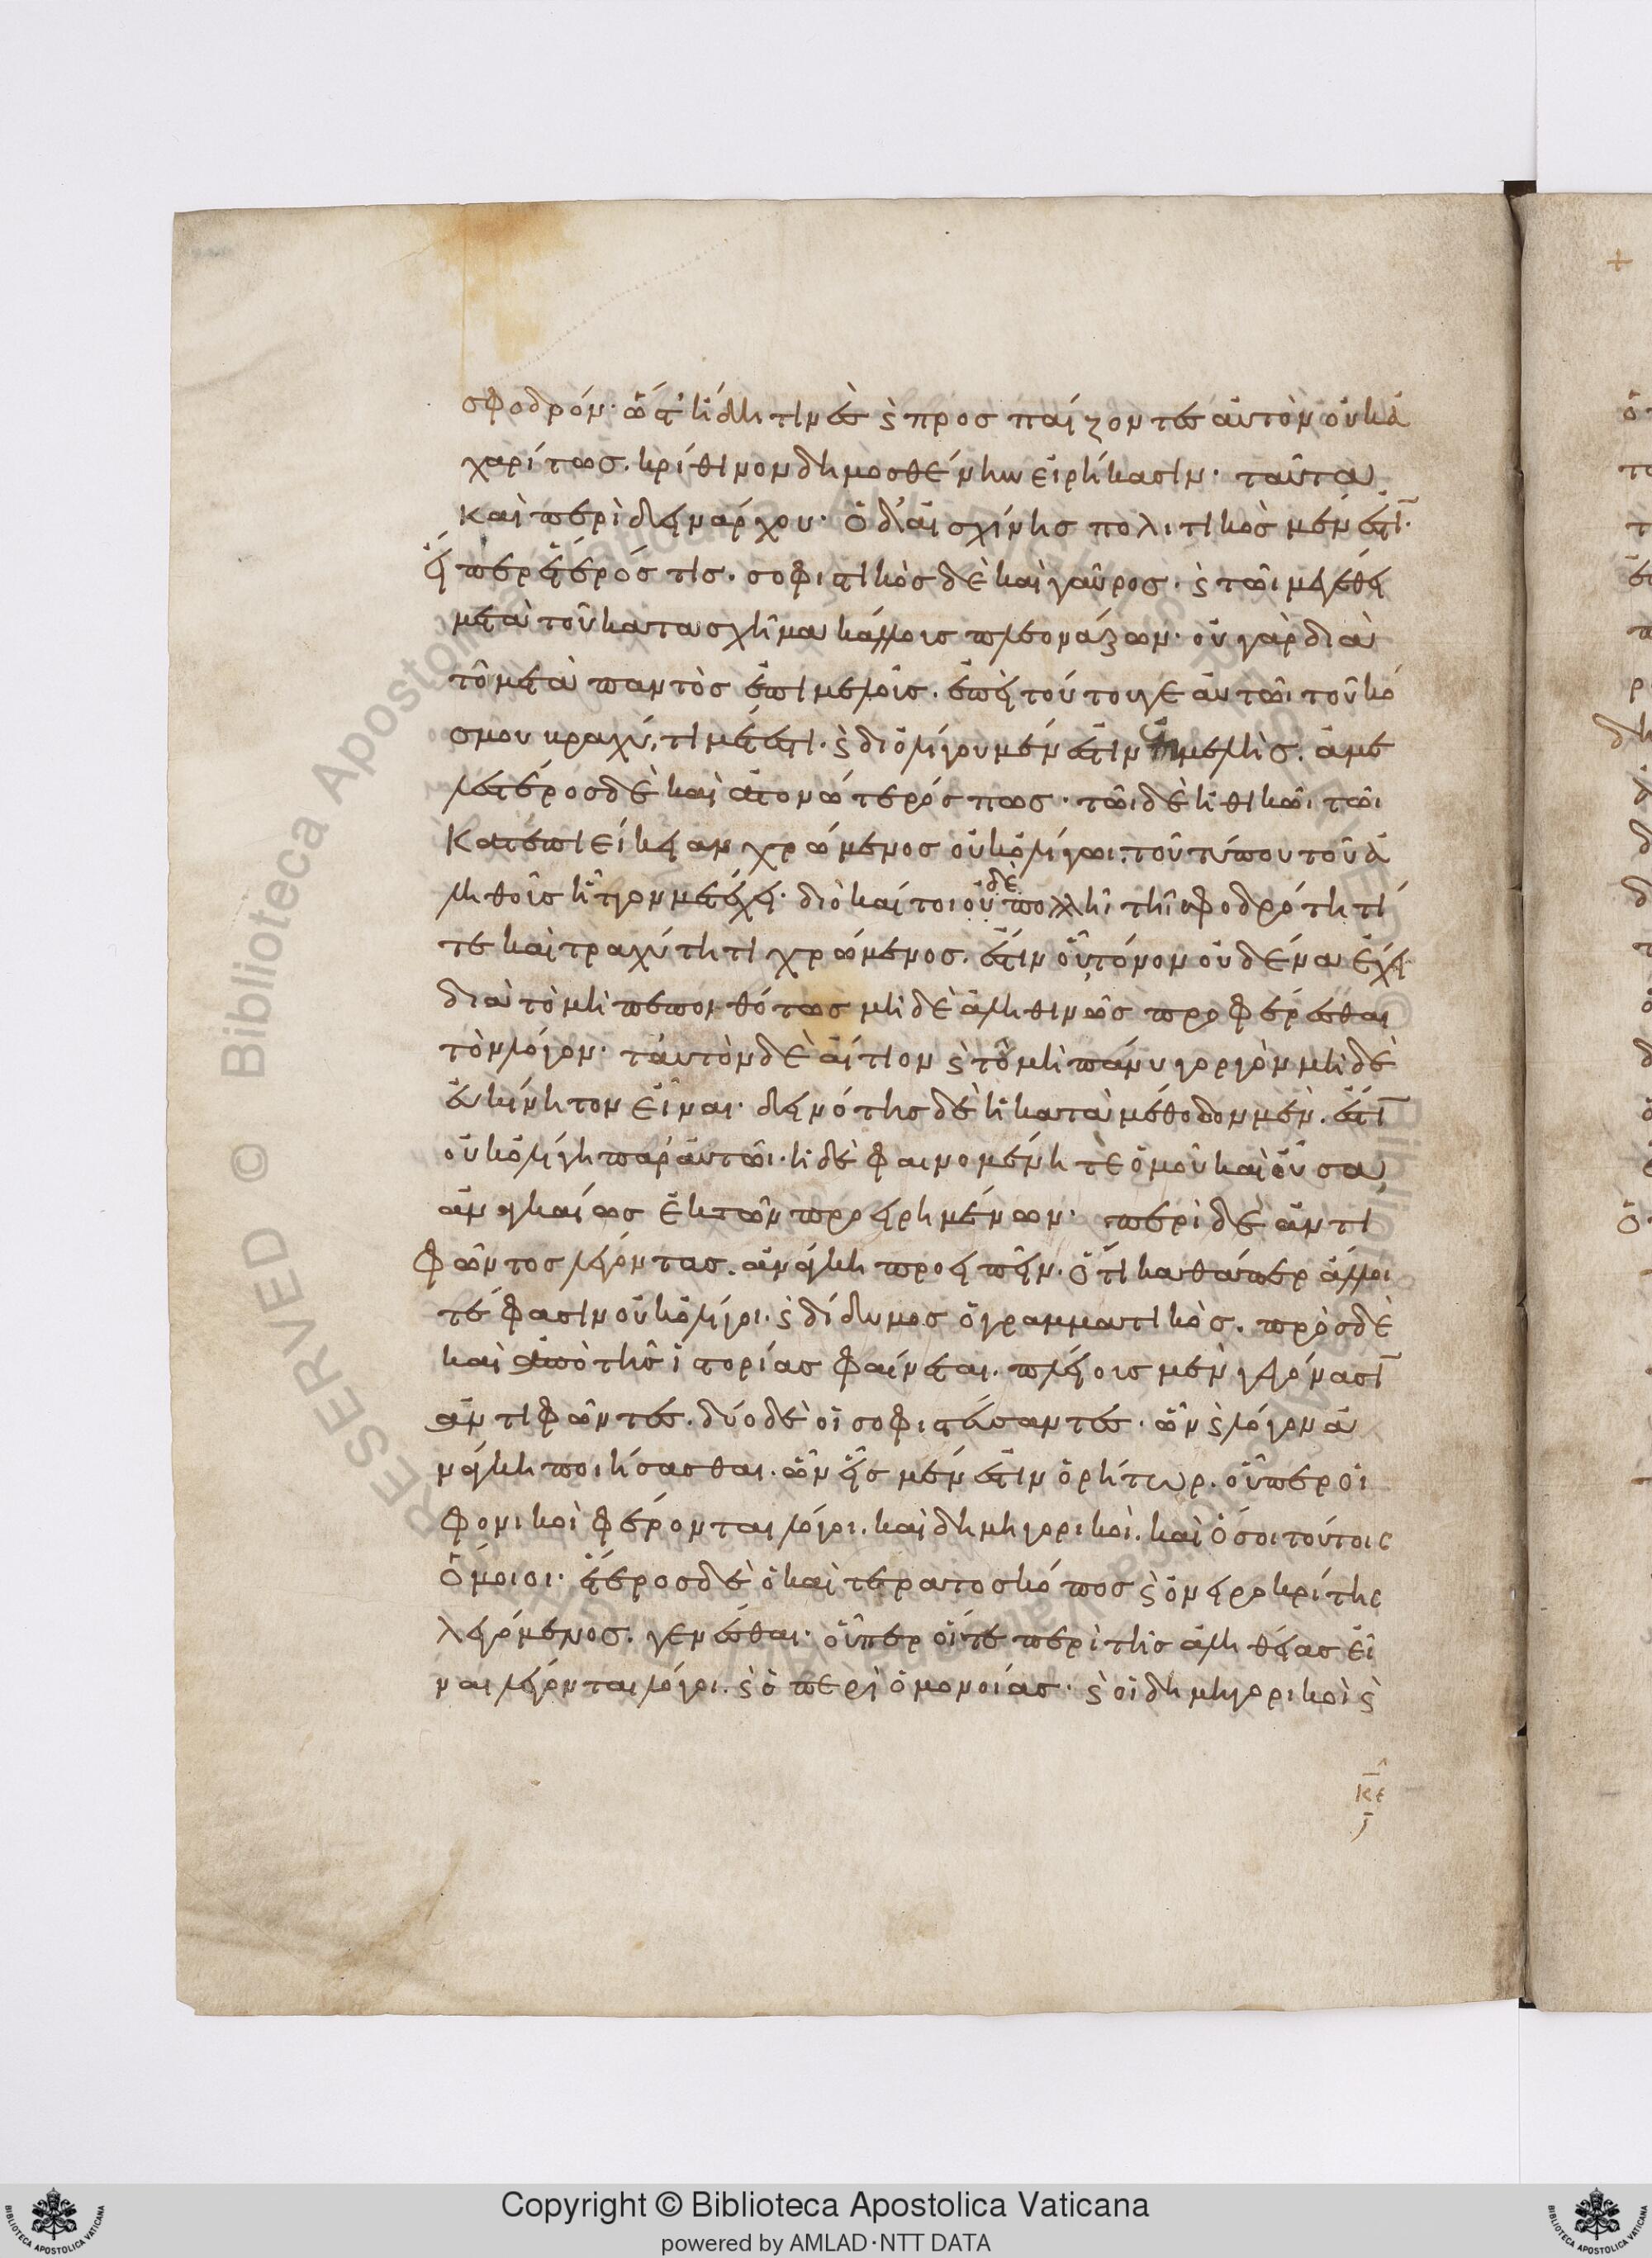 σφοδρόν· ὥστ' ἤδη τινὲς καὶ προσπαίζοντες αὐτὸν οὐκ ἀ
χαρίτως. κρίθινον δημοσθένην εἰρήκασιν· ταῦτα
καὶ περὶ δεινάρχου· ὁ δ' αἰσχίνης πολιτικὸς μέν ἐστι̅·
εἴπερ ἕτερός τις. σοφιστικὸς δὲ καὶ γαῦρος. καὶ τῶι μεγέθει
μετὰ τοῦ κατα σχῆμα κάλλοις πλεονάζων· οὐ γὰρ διὰ
τὸ μετὰ παντὸς ἐπιμελοῖς. ἐπεὶ τούτου γε αὐτῶι τοῦ κό
σμου βραχύ, τι μέτεστι. καὶ δι' ὀλίγου μέν ἐστιν ἐπιμελὴς. ἀμε
λέστερος δὲ καὶ ἀτονώτερός πως· τῶι δὲ ἠθικῶι τῶι
κατεπιείκειαν χρώμενος οὐκ ὀλίγωι. τοῦ τύπου τοῦ ἀ
ληθοῖς ἧττον μετέχει· διὸ καίτοι οὐδὲ πολλῆι τῆι σφοδρότητί
τε καὶ τραχύτητι χρώμενος. ἔστιν οὗ τόνον οὐδένα ἔχει·
διὰ τὸ μὴ πεπονθότως μηδὲ ἀληθινῶς προφέρεσθαι
τὸν λόγον· ταὐτὸν δὲ αἴτιον καὶ τοῦ μὴ πάνυ γοργὸν μηδὲ
εὐκίνητον εἶναι· δεινότης δὲ ἡ κατὰ μέθοδον μὲν. ἐστι̅
οὐκ ὀλίγη παρ' αὐτῶι. ἡ δὲ φαινομένη τε ὁμοῦ καὶ οὖσα
ἀναγκαίως ἐκ τῶν προειρημένων· περὶ δὲ ἀντι
φῶντος λέγοντας. ἀνάγκη προειπεῖν. ὅτι καθάπερ ἄλλοι
τέ φασιν οὐκ ὀλίγοι. καὶ δίδυμος ὁ γραμματικὸς. πρὸς δὲ
καὶ ἀπὸ τῆς ἱστορίας φαίνεται. πλείοις μὲν γεγόνασι̅
ἀντιφῶντες. δύο δὲ οἱ σοφιστεύσαντες· ὧν καὶ λόγον ἀ
νάγκη ποιήσασθαι. ὧν εἷς μέν ἐστιν ὁ ῥήτωρ. οὗπερ οἱ
φονικοὶ φέρονται λόγοι. καὶ δημηγορικοὶ. καὶ ὅσοι τούτοις
ὅμοιοι· ἕτερος δὲ ὁ καὶ τερατοσκόπος καὶ ὀνειροκρίτης
λεγόμενος. γενέσθαι· οὗπερ οἵ τε περὶ τῆς ἀληθείας εἶ
ναι λέγονται λόγοι. καὶ ὁ περὶ ὁμονοίας· καὶ οἱ δημηγορικοὶ καὶ
Copyright © Biblioteca Apostolica Vaticana
powered by AMLAD·NTT DATA